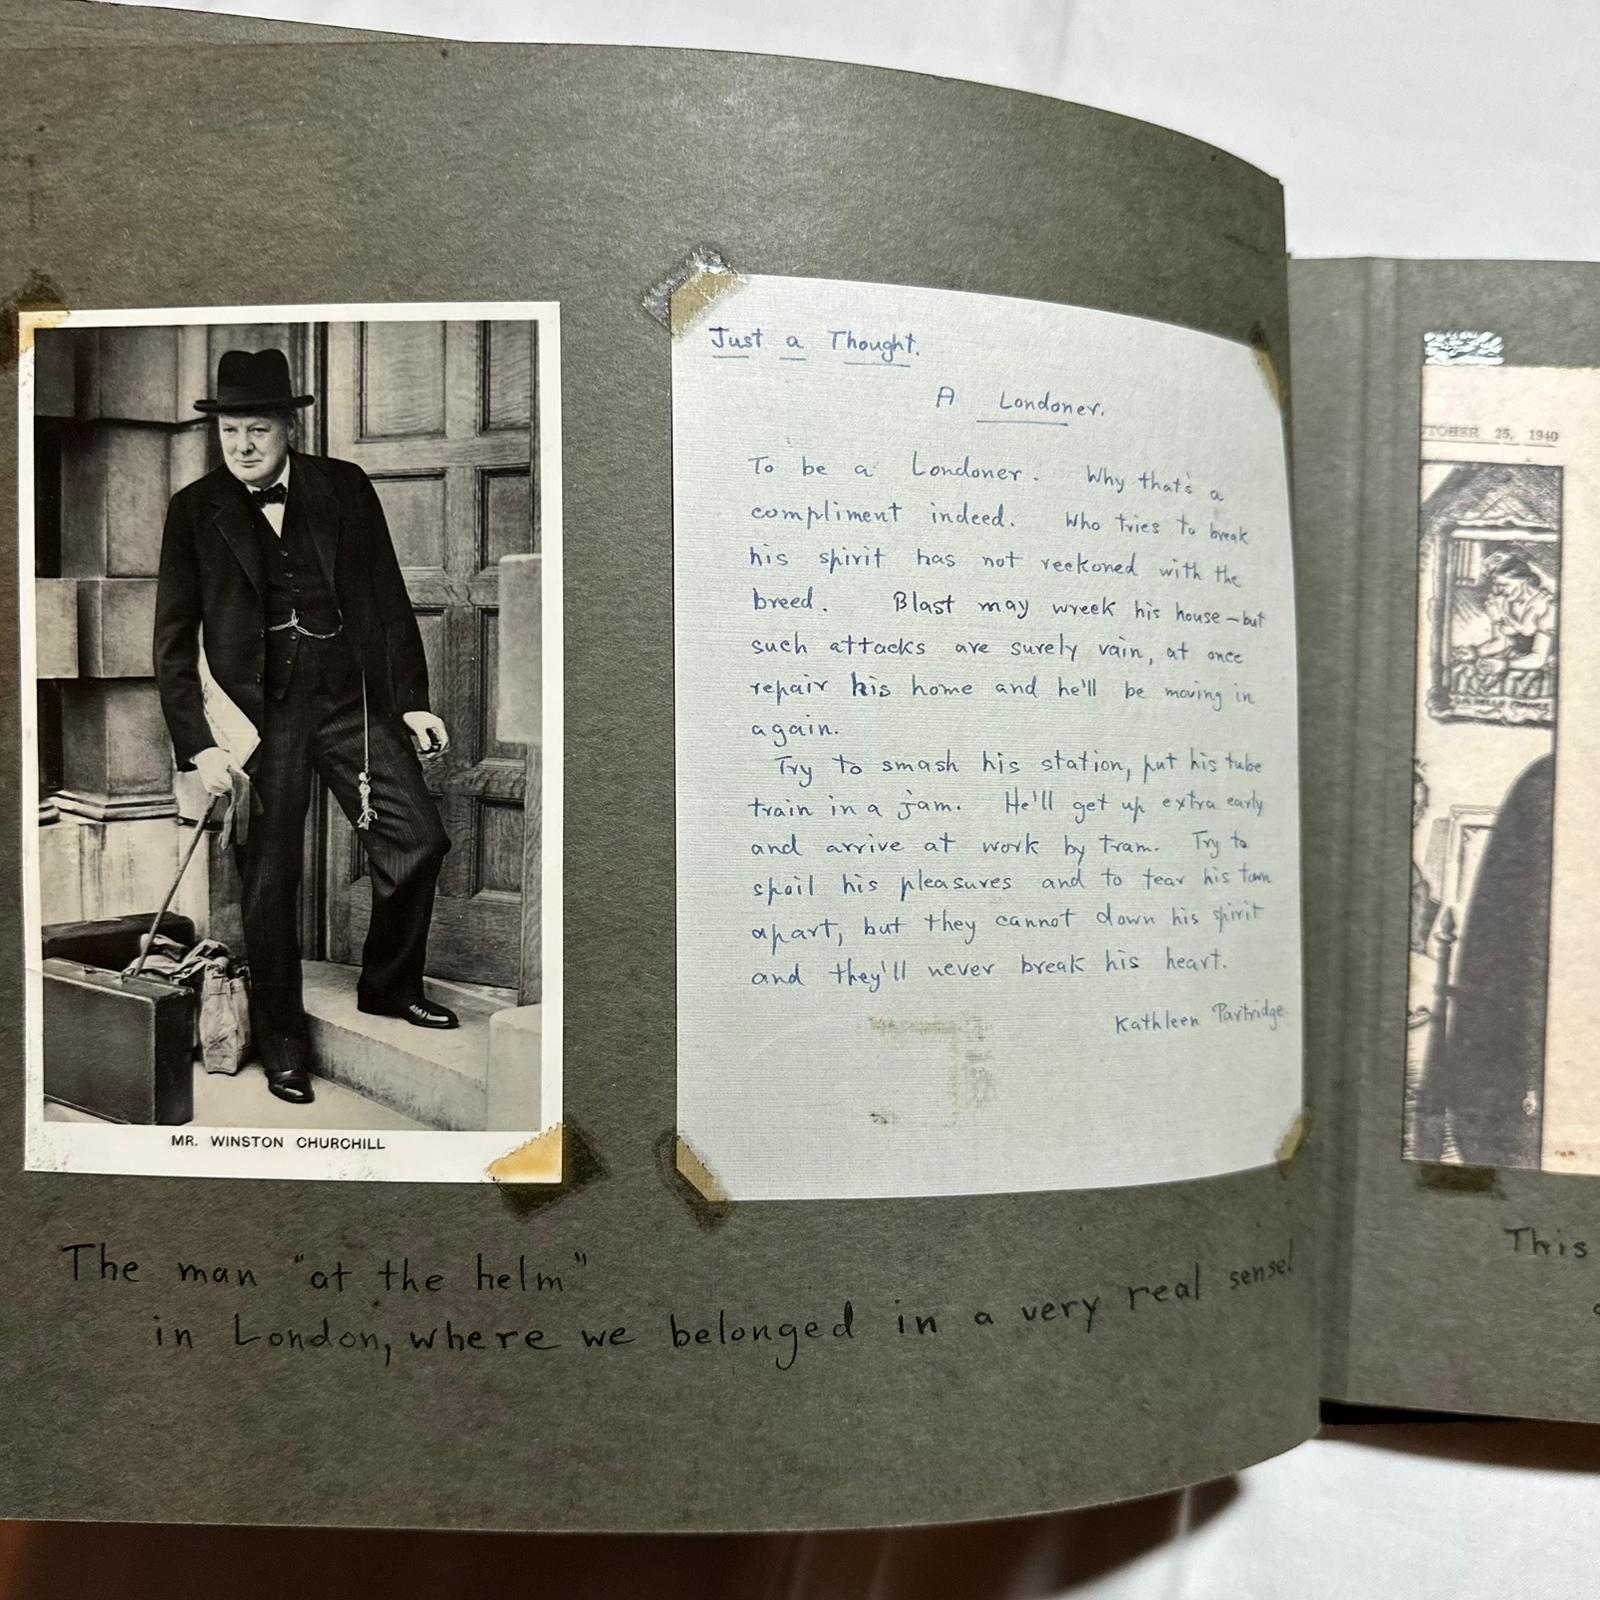 MR. WINSTON CHURCHILL
The man "at the helm"
in London, where we belonged in a very real sense!
Just a Thought.
A Londoner.
To be a Londoner. Why that's a
compliment indeed. Who tries to break
his spirit has not reckoned with the
breed. Blast may wreek his house - but
such attacks are surely vain, at once
repair his home and he'll be moving in
again.
Try to smash his station, put his tube
train in a jam. He'll get up extra early
and arrive at work by tram. Try to
spoil his pleasures and to tear his town
apart, but they cannot down his spirit
and they'll never break his heart.
Kathleen Partridge.
TOBER 25, 1940
This